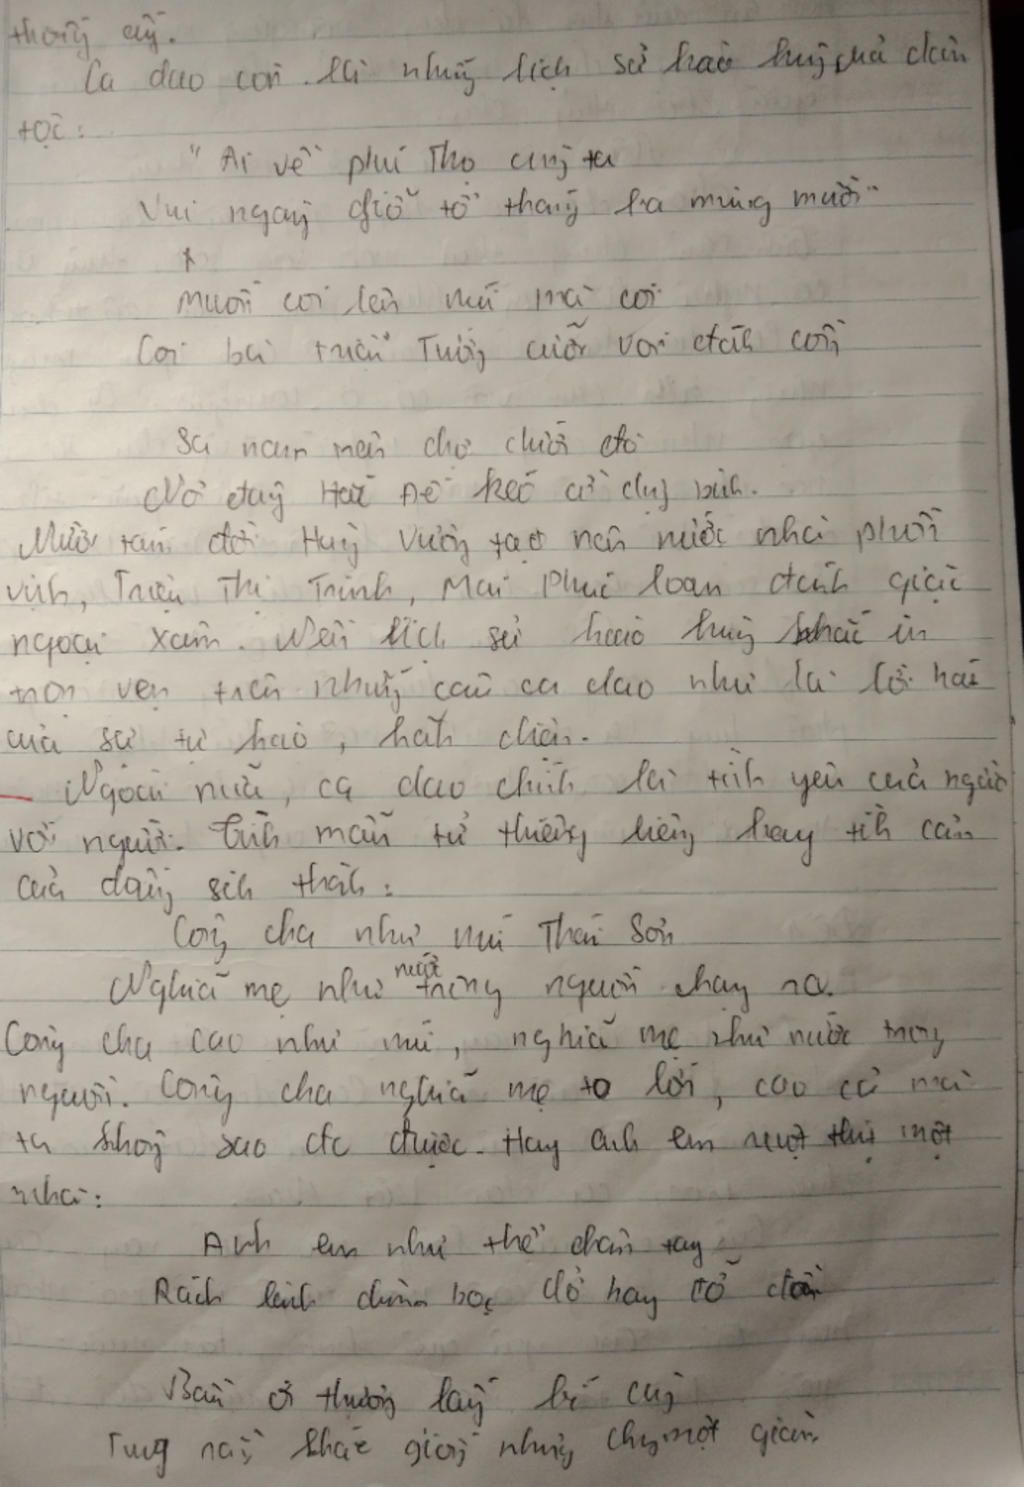 thống ấy.
Ca dao còn là những lịch sử hào hùng của dân
tộc:
"Ai về phú Thọ cùng ta
Vui ngày giỗ tổ tháng ba mùng mười"
Muốn coi lên núi mà coi
Coi bà triệu Tướng cưỡi voi đánh cồng
Sa nam trên chợ dưới đò
Nơi đây Hắc Đế kéo cờ dựng binh.
Mười tám đời Hùng Vương tạo nên nước nhà phồn
vinh, Triệu Thị Trinh, Mai Phúc Loan đánh giặc
ngoại xâm. Nền lịch sử hào hùng khắc in
trọn vẹn trên những câu ca dao như là lời hát
của sự tự hào, hân diện.
Ngoài nữa, ca dao chính là tình yêu của người
với người. Tình mẫu tử thiêng liêng hay tình cảm
của đấng sinh thành:
Công cha như núi Thái Sơn
Nghĩa mẹ như nước trong nguồn chảy ra.
Công cha cao như núi, nghĩa mẹ như nước trong
nguồn. Công cha nghĩa mẹ to lớn, cao cả mà
ta không sao đo được. Hay anh em ruột thịt một
nhà:
Anh em như thể chân tay
Rách lành đùm bọc dở hay đỡ đần
Bầu ơi thương lấy bí cùng
Tung rằng khác giống nhưng chung một giàn